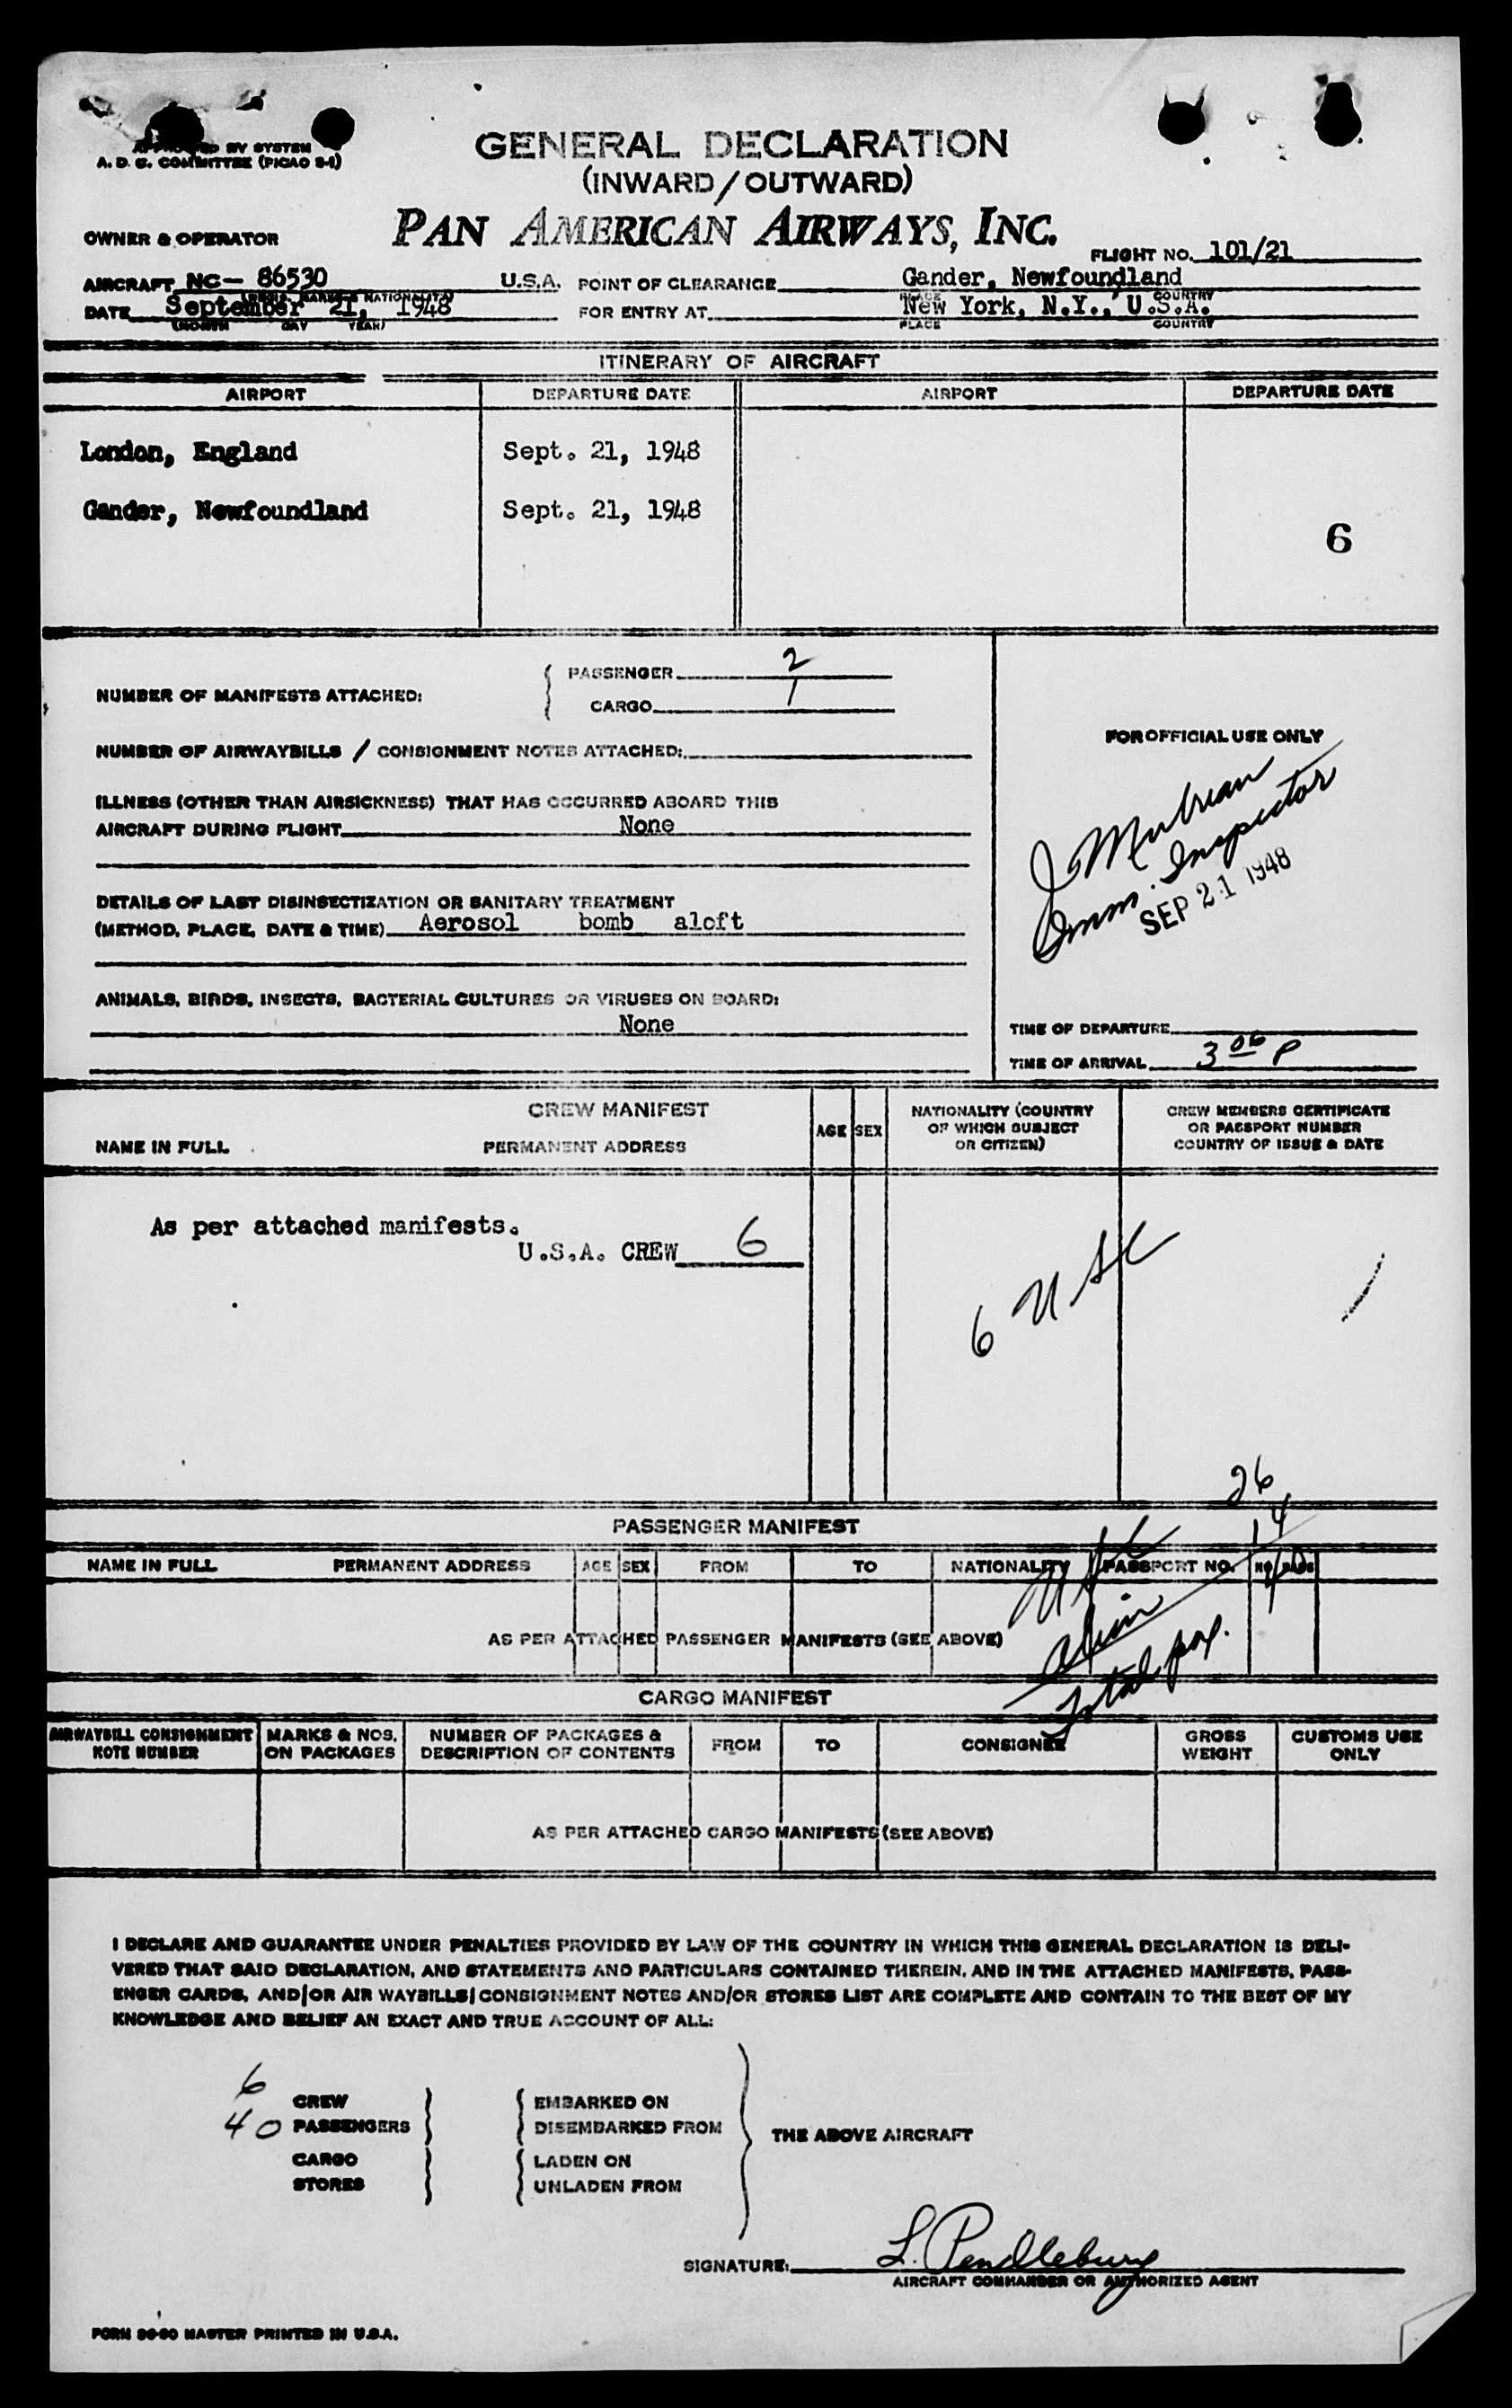 APPROVED BY SYSTEM
A. D. C. COMMITTEE (PICAO S-1)
GENERAL DECLARATION
(INWARD/OUTWARD)
OWNER & OPERATOR PAN AMERICAN AIRWAYS, INC. FLIGHT NO. 101/21
AIRCRAFT NC- 86530 U.S.A. POINT OF CLEARANCE Gander, Newfoundland
(REGIS. MARKS & NATIONALITY) PLACE COUNTRY
DATE September 21, 1948 FOR ENTRY AT New York, N.Y., U.S.A.
(MONTH DAY YEAR) PLACE COUNTRY
ITINERARY OF AIRCRAFT
AIRPORT DEPARTURE DATE AIRPORT DEPARTURE DATE
London, England Sept. 21, 1948
Gander, Newfoundland Sept. 21, 1948
6
NUMBER OF MANIFESTS ATTACHED: PASSENGER 2
CARGO 1
NUMBER OF AIRWAYBILLS / CONSIGNMENT NOTES ATTACHED:
ILLNESS (OTHER THAN AIRSICKNESS) THAT HAS OCCURRED ABOARD THIS
AIRCRAFT DURING FLIGHT None
DETAILS OF LAST DISINSECTIZATION OR SANITARY TREATMENT
(METHOD, PLACE, DATE & TIME) Aerosol bomb aloft
ANIMALS, BIRDS, INSECTS, BACTERIAL CULTURES OR VIRUSES ON BOARD:
None
FOR OFFICIAL USE ONLY
Imm. Inspector
SEP 21 1948
TIME OF DEPARTURE
TIME OF ARRIVAL 3 06 P
CREW MANIFEST
NAME IN FULL PERMANENT ADDRESS AGE SEX NATIONALITY (COUNTRY OF WHICH SUBJECT OR CITIZEN) CREW MEMBERS CERTIFICATE OR PASSPORT NUMBER COUNTRY OF ISSUE & DATE
As per attached manifests.
U.S.A. CREW 6
6 USC
PASSENGER MANIFEST
NAME IN FULL PERMANENT ADDRESS AGE SEX FROM TO NATIONALITY PASSPORT NO. NO BAGS
AS PER ATTACHED PASSENGER MANIFESTS (SEE ABOVE)
USC 26
Alien 14
Total pax. 40
CARGO MANIFEST
AIRWAYBILL CONSIGNMENT NOTE NUMBER MARKS & NOS. ON PACKAGES NUMBER OF PACKAGES & DESCRIPTION OF CONTENTS FROM TO CONSIGNEE GROSS WEIGHT CUSTOMS USE ONLY
AS PER ATTACHED CARGO MANIFESTS (SEE ABOVE)
I DECLARE AND GUARANTEE UNDER PENALTIES PROVIDED BY LAW OF THE COUNTRY IN WHICH THIS GENERAL DECLARATION IS DELI-
VERED THAT SAID DECLARATION, AND STATEMENTS AND PARTICULARS CONTAINED THEREIN, AND IN THE ATTACHED MANIFESTS, PASS-
ENGER CARDS, AND/OR AIR WAYBILLS/CONSIGNMENT NOTES AND/OR STORES LIST ARE COMPLETE AND CONTAIN TO THE BEST OF MY
KNOWLEDGE AND BELIEF AN EXACT AND TRUE ACCOUNT OF ALL:
6 CREW EMBARKED ON
40 PASSENGERS DISEMBARKED FROM THE ABOVE AIRCRAFT
CARGO LADEN ON
STORES UNLADEN FROM
SIGNATURE: L. Pendlebury
AIRCRAFT COMMANDER OR AUTHORIZED AGENT
MASTER PRINTED IN U.S.A.